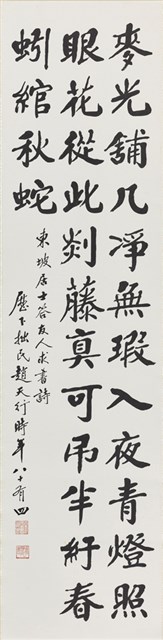 麥光舖几淨無瑕入夜青燈照
眼花從此剡藤真可吊半紆春
蚓綰秋蛇
東坡居士答友人求書詩
歷下拙民趙天行時年八十有四